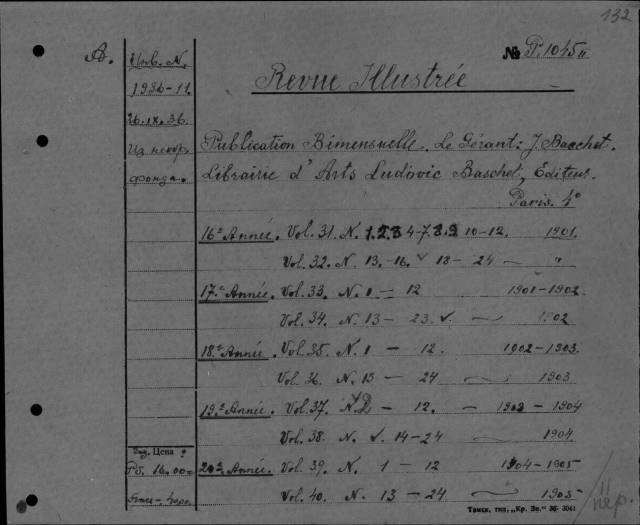 132
A. Инв. N. № P.1045 II
1936-11.
Revue Illustrée
26.IX.36.
Из необр. Publication Bimensuelle. Le Gérant: J. Baschet.
фонда. Librairie d'Arts Ludovic Baschet, Editeur.
Paris. 4°
16e Année. Vol. 31. N. 1.2.3 4-7.8.9 10-12. 1901.
Vol. 32. N. 13.-16. v 18 - 24 — "
17.e Année. Vol. 33. N. 1 - 12 1901-1902.
Vol. 34. N. 13 - 23. v. — 1902
18.e Année. Vol. 35. N. 1 - 12. 1902-1903.
Vol. 36. N. 13 - 24 — 1903
19.e Année. Vol. 37. N. 2 - 12. — 1903 - 1904
Vol. 38. N. v. 14-24 — 1904
Цена
Рб. 16.00= 20e Année. Vol. 39. N. 1 - 12 1904-1905
Vol. 40. N. 13 - 24 — 1905
Томск, тип. „Кр. Зн." 36- 3041
11
пер.